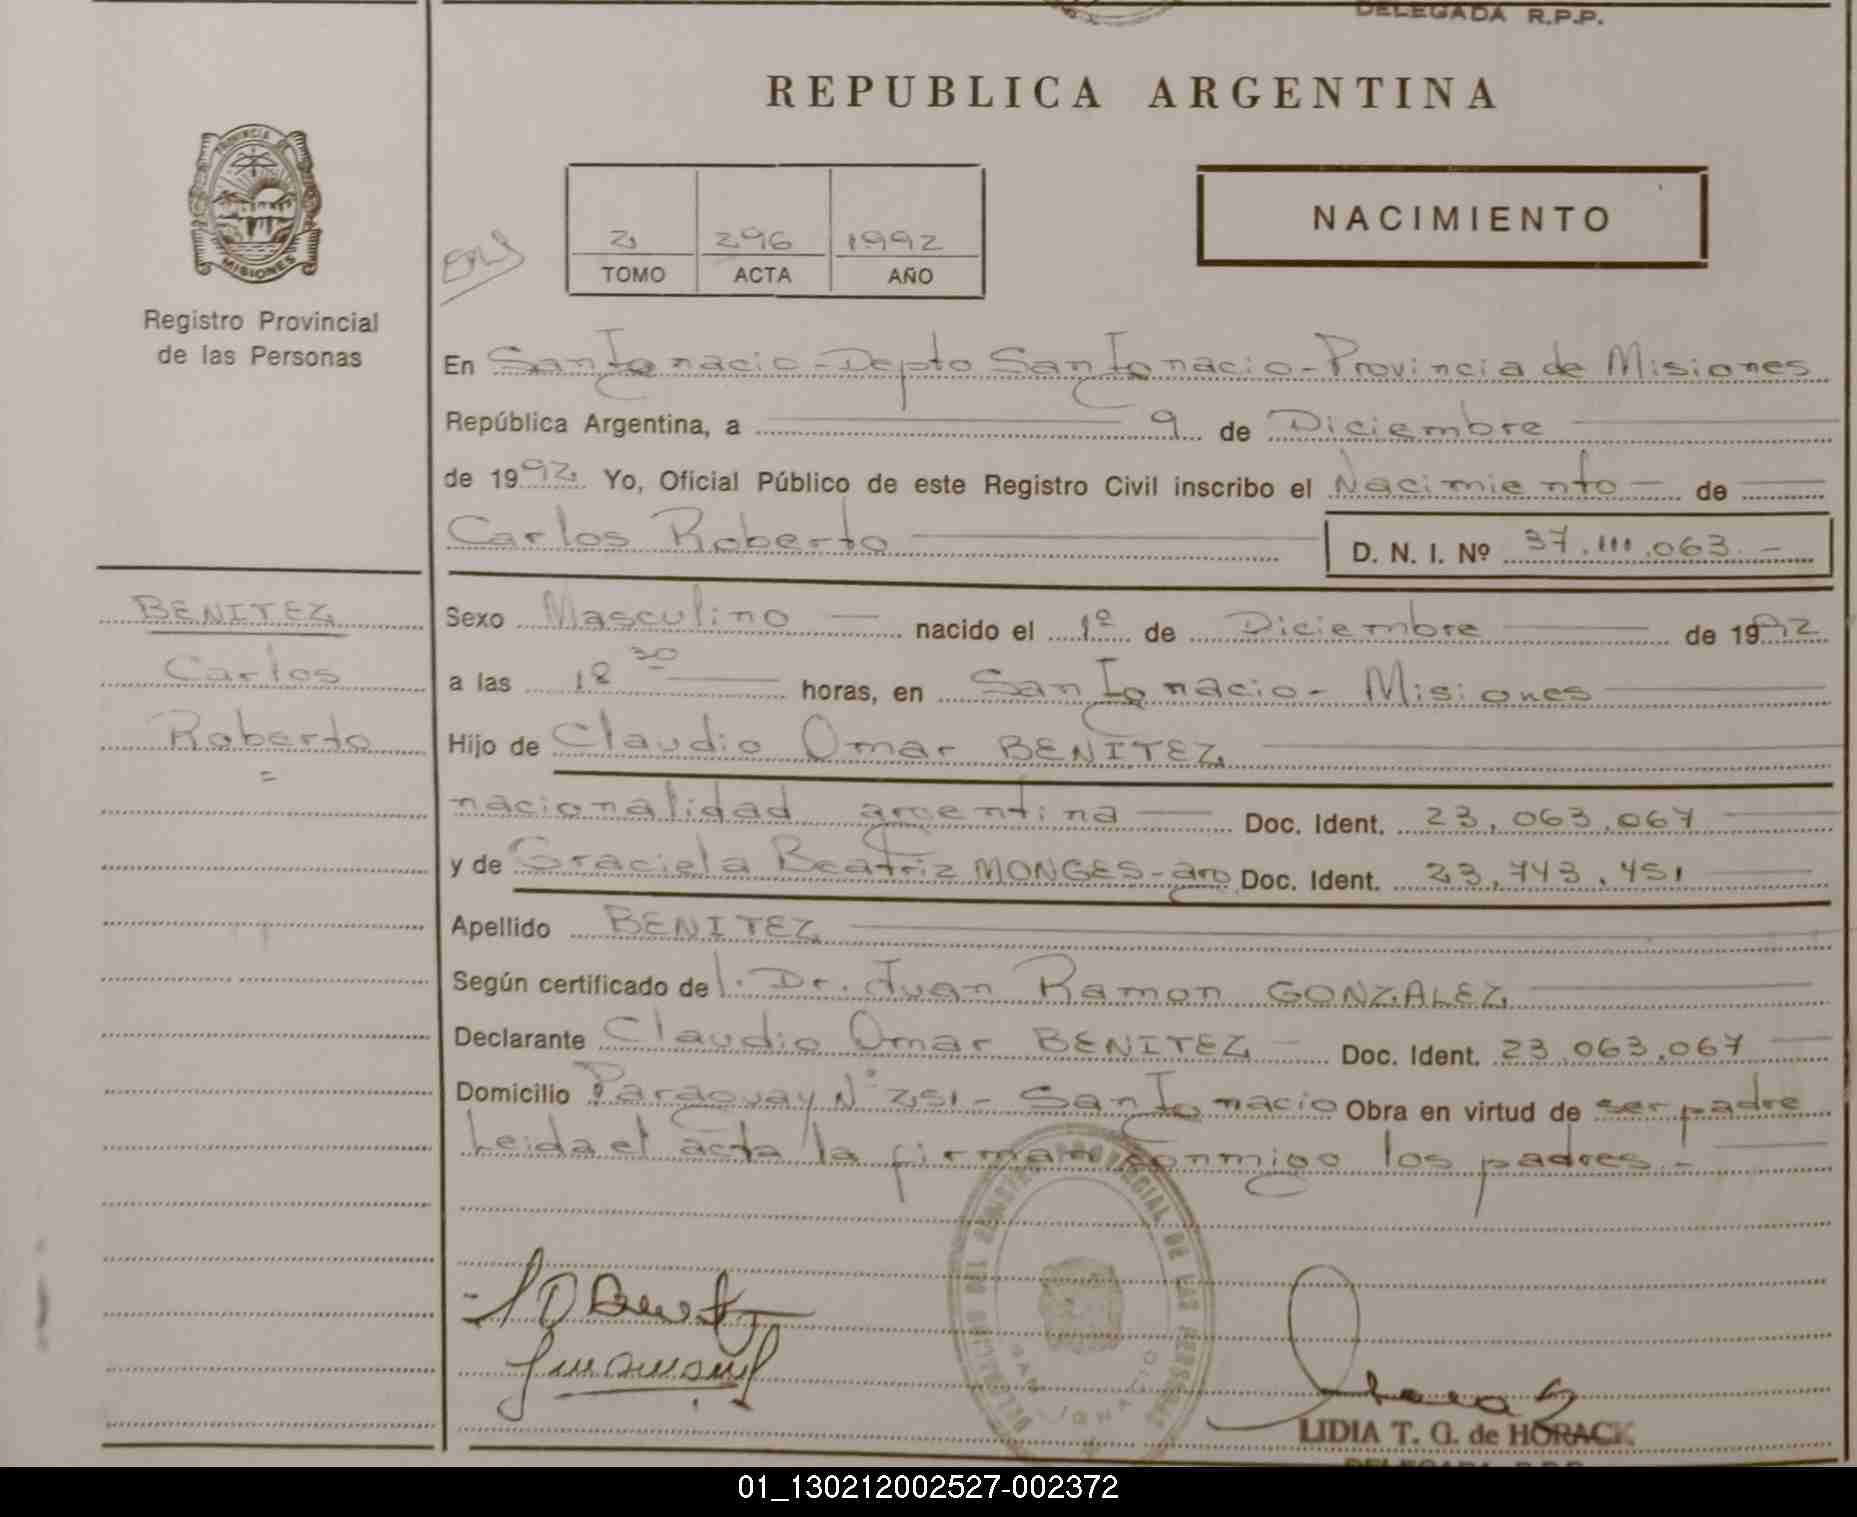 DELEGADA R.P.P.
REPUBLICA ARGENTINA
PROVINCIA DE
MISIONES
Registro Provincial
de las Personas
2 296 1992
TOMO ACTA AÑO
NACIMIENTO
En San Ignacio - Depto San Ignacio - Provincia de Misiones
República Argentina, a 9 de Diciembre
de 1992 Yo, Oficial Público de este Registro Civil inscribo el Nacimiento - de
Carlos Roberto D. N. I. Nº 37.111.063.-
BENITEZ
Carlos
Roberto
=
Sexo Masculino — nacido el 1º de Diciembre — de 1992
a las 18 30 — horas, en San Ignacio - Misiones
Hijo de Claudio Omar BENITEZ
nacionalidad argentina — Doc. Ident. 23.063.067
y de Graciela Beatriz MONGES - arg Doc. Ident. 23.743.451
Apellido BENITEZ
Según certificado del. Dr. Juan Ramon GONZALEZ
Declarante Claudio Omar BENITEZ - Doc. Ident. 23.063.067
Domicilio Paraguay Nº 251 - San Ignacio Obra en virtud de ser padre
Leida el acta la firman conmigo los padres.-
REGISTRO PROVINCIAL DE LAS PERSONAS
SAN IGNACIO
LIDIA T. G. de HORACK
DELEGADA R.P.P.
01_130212002527-002372